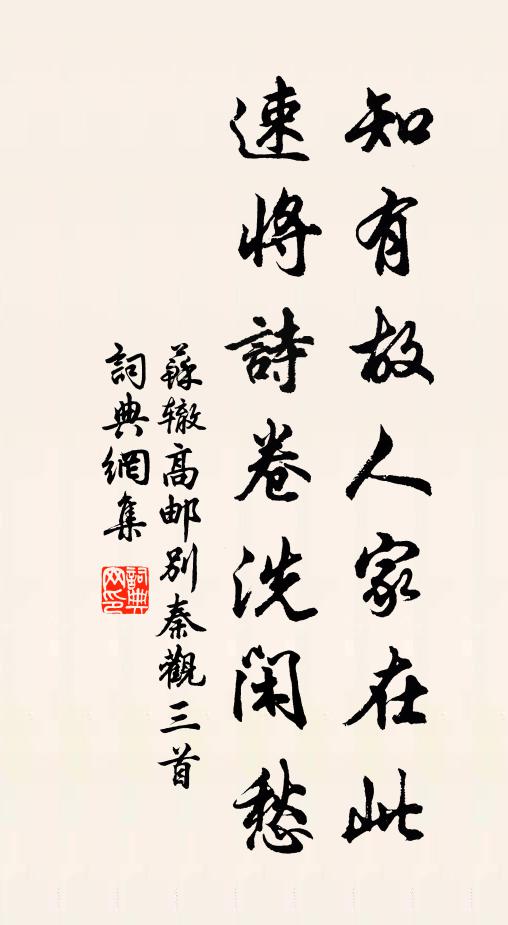 知有故人家在此
速將詩卷洗閑愁
蘇辙高邮别秦觀三首
詞典網集
詞典網印